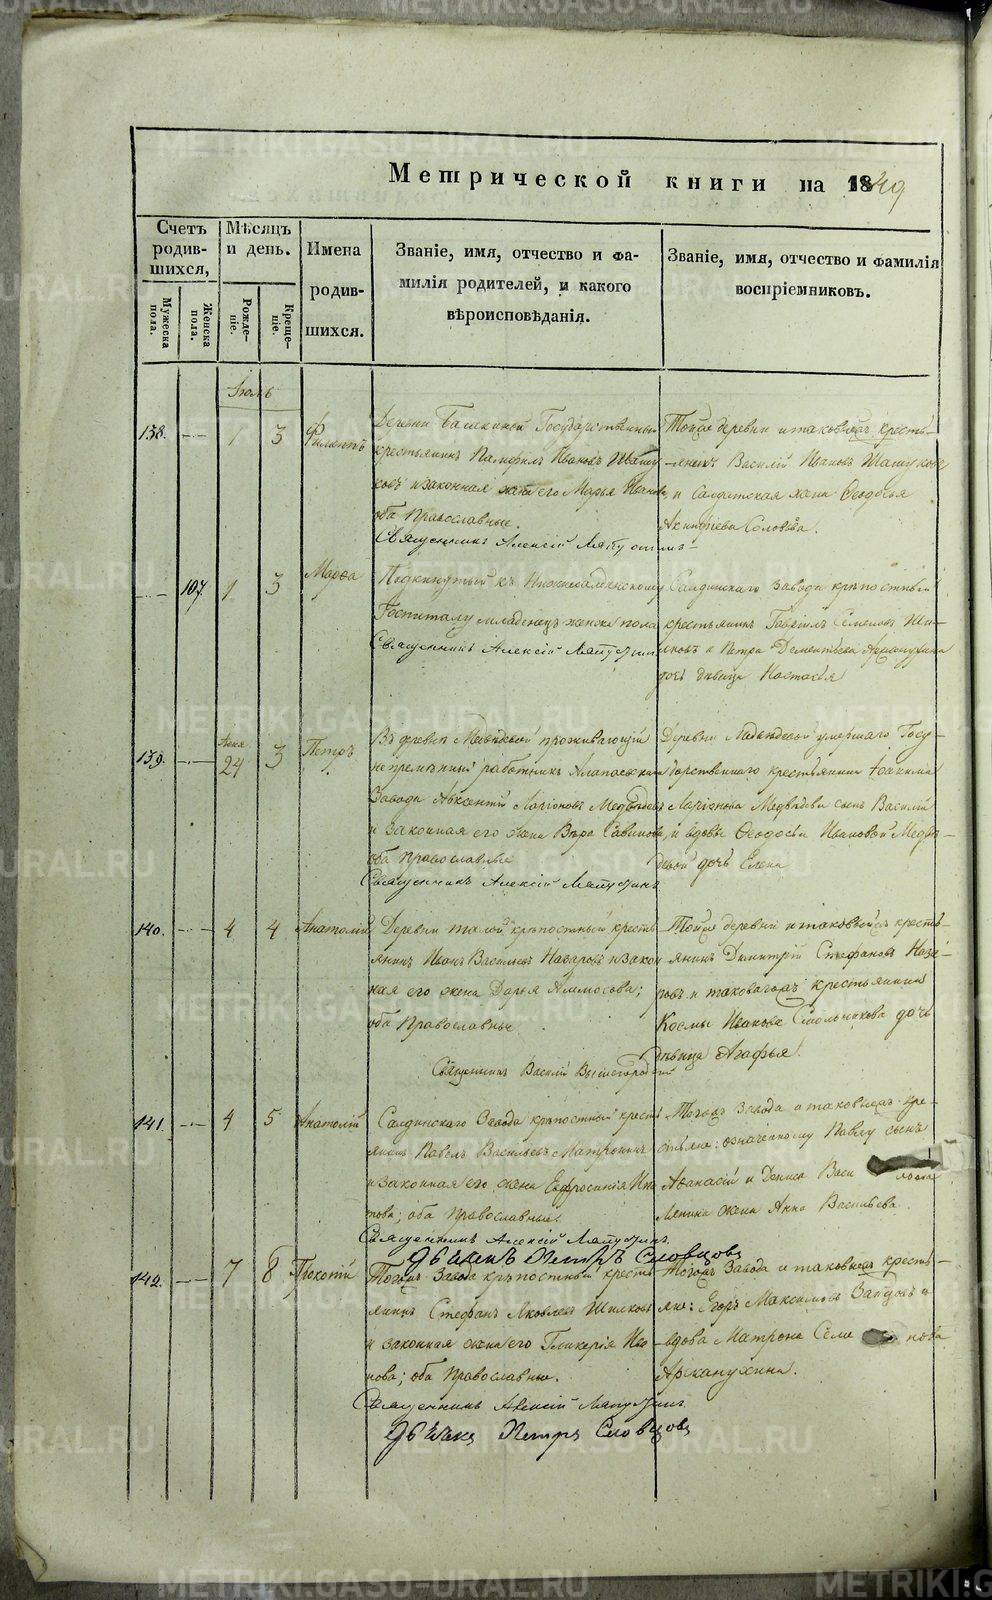 Метрической книги на 1849
Счетъ родив-шихся,
Мѣсяцъ и день.
Имена родив-шихся.
Званіе, имя, отчество и фа-
милія родителей, и какого
вѣроисповѣданія.
Званіе, имя, отчество и фамилія
воспріемниковъ.
Мужеска пола.
Женска пола.
Рожде-ніе.
Креще-ніе.
Іюль
138. 1 3 Филиппъ
Деревни Балакиной Государственный
крестьянинъ Памфилъ Ивановъ
и законная жена его Марья Иванова,
оба Православные.
Священникъ Алексій
Тойже деревни и таковыежъ кресть-
янинъ Василій Ивановъ
и Салдатская жена Ѳеодосья
Акинфіева Соловьева.
107. 1 3 Марѳа
Подкинутый къ Нижнесалдинскому
Госпиталу младенецъ женска пола
Священникъ Алексій
Салдинскаго завода крѣпостный
крестьянинъ Гавріилъ Семеновъ Ши-
лковъ и Петра Дементьева
дочь дѣвица Настасья
139. Іюня 24 3 Петръ
Въ деревнѣ Медвѣдевой проживающій
непремѣнный работникъ Алапаевскаго
Завода Авксентій Ларіоновъ Медвѣдевъ
и законная его жена Вѣра Савинова,
оба православные
Священникъ Алексій
Деревни Медвѣдевой умершаго Госу-
дарственнаго крестьянина Іоакима
Ларіонова Медвѣдева сынъ Василій
и вдовы Ѳеодосьи Ивановой Медвѣ-
девой дочь Елена
140. 4 4 Анатолій
Деревни крѣпостный кресть
янинъ Иванъ Васильевъ Назаровъ и закон
ная его жена Дарья Аммосова;
оба Православные
Священникъ Василій
Тойже деревни и таковыежъ кресть-
янинъ Димитрій Стефановъ Наза-
ровъ и таковагожъ крестьянина
Космы Иванова Смольникова дочь
дѣвица Агафья.
141. 4 5 Анатолій
Салдинскаго Завода крѣпостный кресть
янинъ Павелъ Васильевъ Матронинъ
и законная его жена Евфросинія
това; оба Православные.
Священникъ Алексій
Дьячекъ Петръ Словцовъ
Тогожъ Завода и таковыежъ кре-
стьяне: означенному Павлу сынъ
Афанасій и Дениса
жена Анна Васильева.
142. 7 8 Прокопій
Тогожъ Завода крѣпостный кресть
янинъ Стефанъ Яковлевъ Шилковъ
и законная жена его Гликерія Ива
нова; оба Православные.
Священникъ Алексій
Дьячекъ Петръ Словцовъ
Тогожъ Завода и таковыежъ кресть-
яне: Егоръ Максимовъ Зайцовъ и
вдова Матрона
METRIKI.GASO-URAL.RU